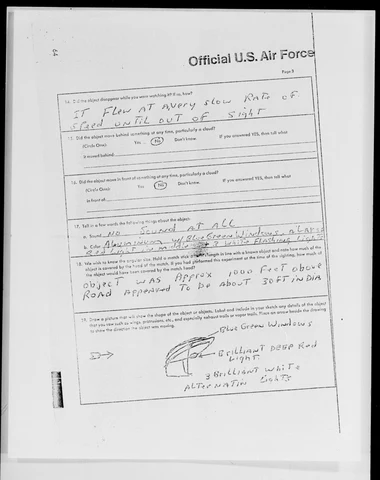 64
Official U.S. Air Force
Page 5
14. Did the object disappear while you were watching it? If so, how?
IT FLEW AT A VERY SLOW RATE OF
SPEED UNTIL OUT OF SIGHT
15. Did the object move behind something at any time, particularly a cloud?
(Circle One): Yes No Don't know. If you answered YES, then tell what
it moved behind
16. Did the object move in front of something at any time, particularly a cloud?
(Circle One): Yes No Don't know. If you answered YES, then tell what
in front of
17. Tell in a few words the following things about the object:
a. Sound NO SOUND AT ALL
b. Color Aluminum w/Blue Green Windows a Large
Red Light 3 White Flashing Lights
18. We wish to know the angular size. Hold a match stick at arm's length in line with a known object and note how much of the
object is covered by the head of the match. If you had performed this experiment at the time of the sighting, how much of
the object would have been covered by the match head?
OBJECT WAS APPROX 1000 FEET ABOVE
ROAD APPEARED TO BE ABOUT 30FT IN DIA
19. Draw a picture that will show the shape of the object or objects. Label and include in your sketch any details of the object
that you saw such as wings, protrusions, etc., and especially exhaust trails or vapor trails. Place an arrow beside the drawing
to show the direction the object was moving.
Blue Green Windows
Brilliant DEEP Red
Light
3 Brilliant White
ALTERNATIN Lights